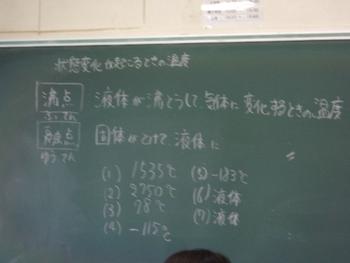 状態変化が起こるときの温度
沸点 液体が沸とうして、気体に変化するときの温度
ふってん
融点 固体がとけて、液体に 〃
ゆうてん
(1) 1535℃ (5) -183℃
(2) 2750℃ (6) 液体
(3) 78℃ (7) 液体
(4) -115℃